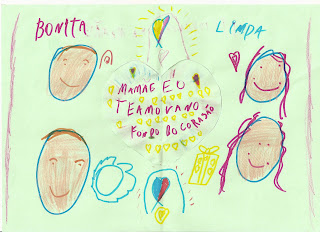 BONITA
LIMDA
MAMAE EU
TEAMO LÁ NO
FONDO DO CORAÇÃO